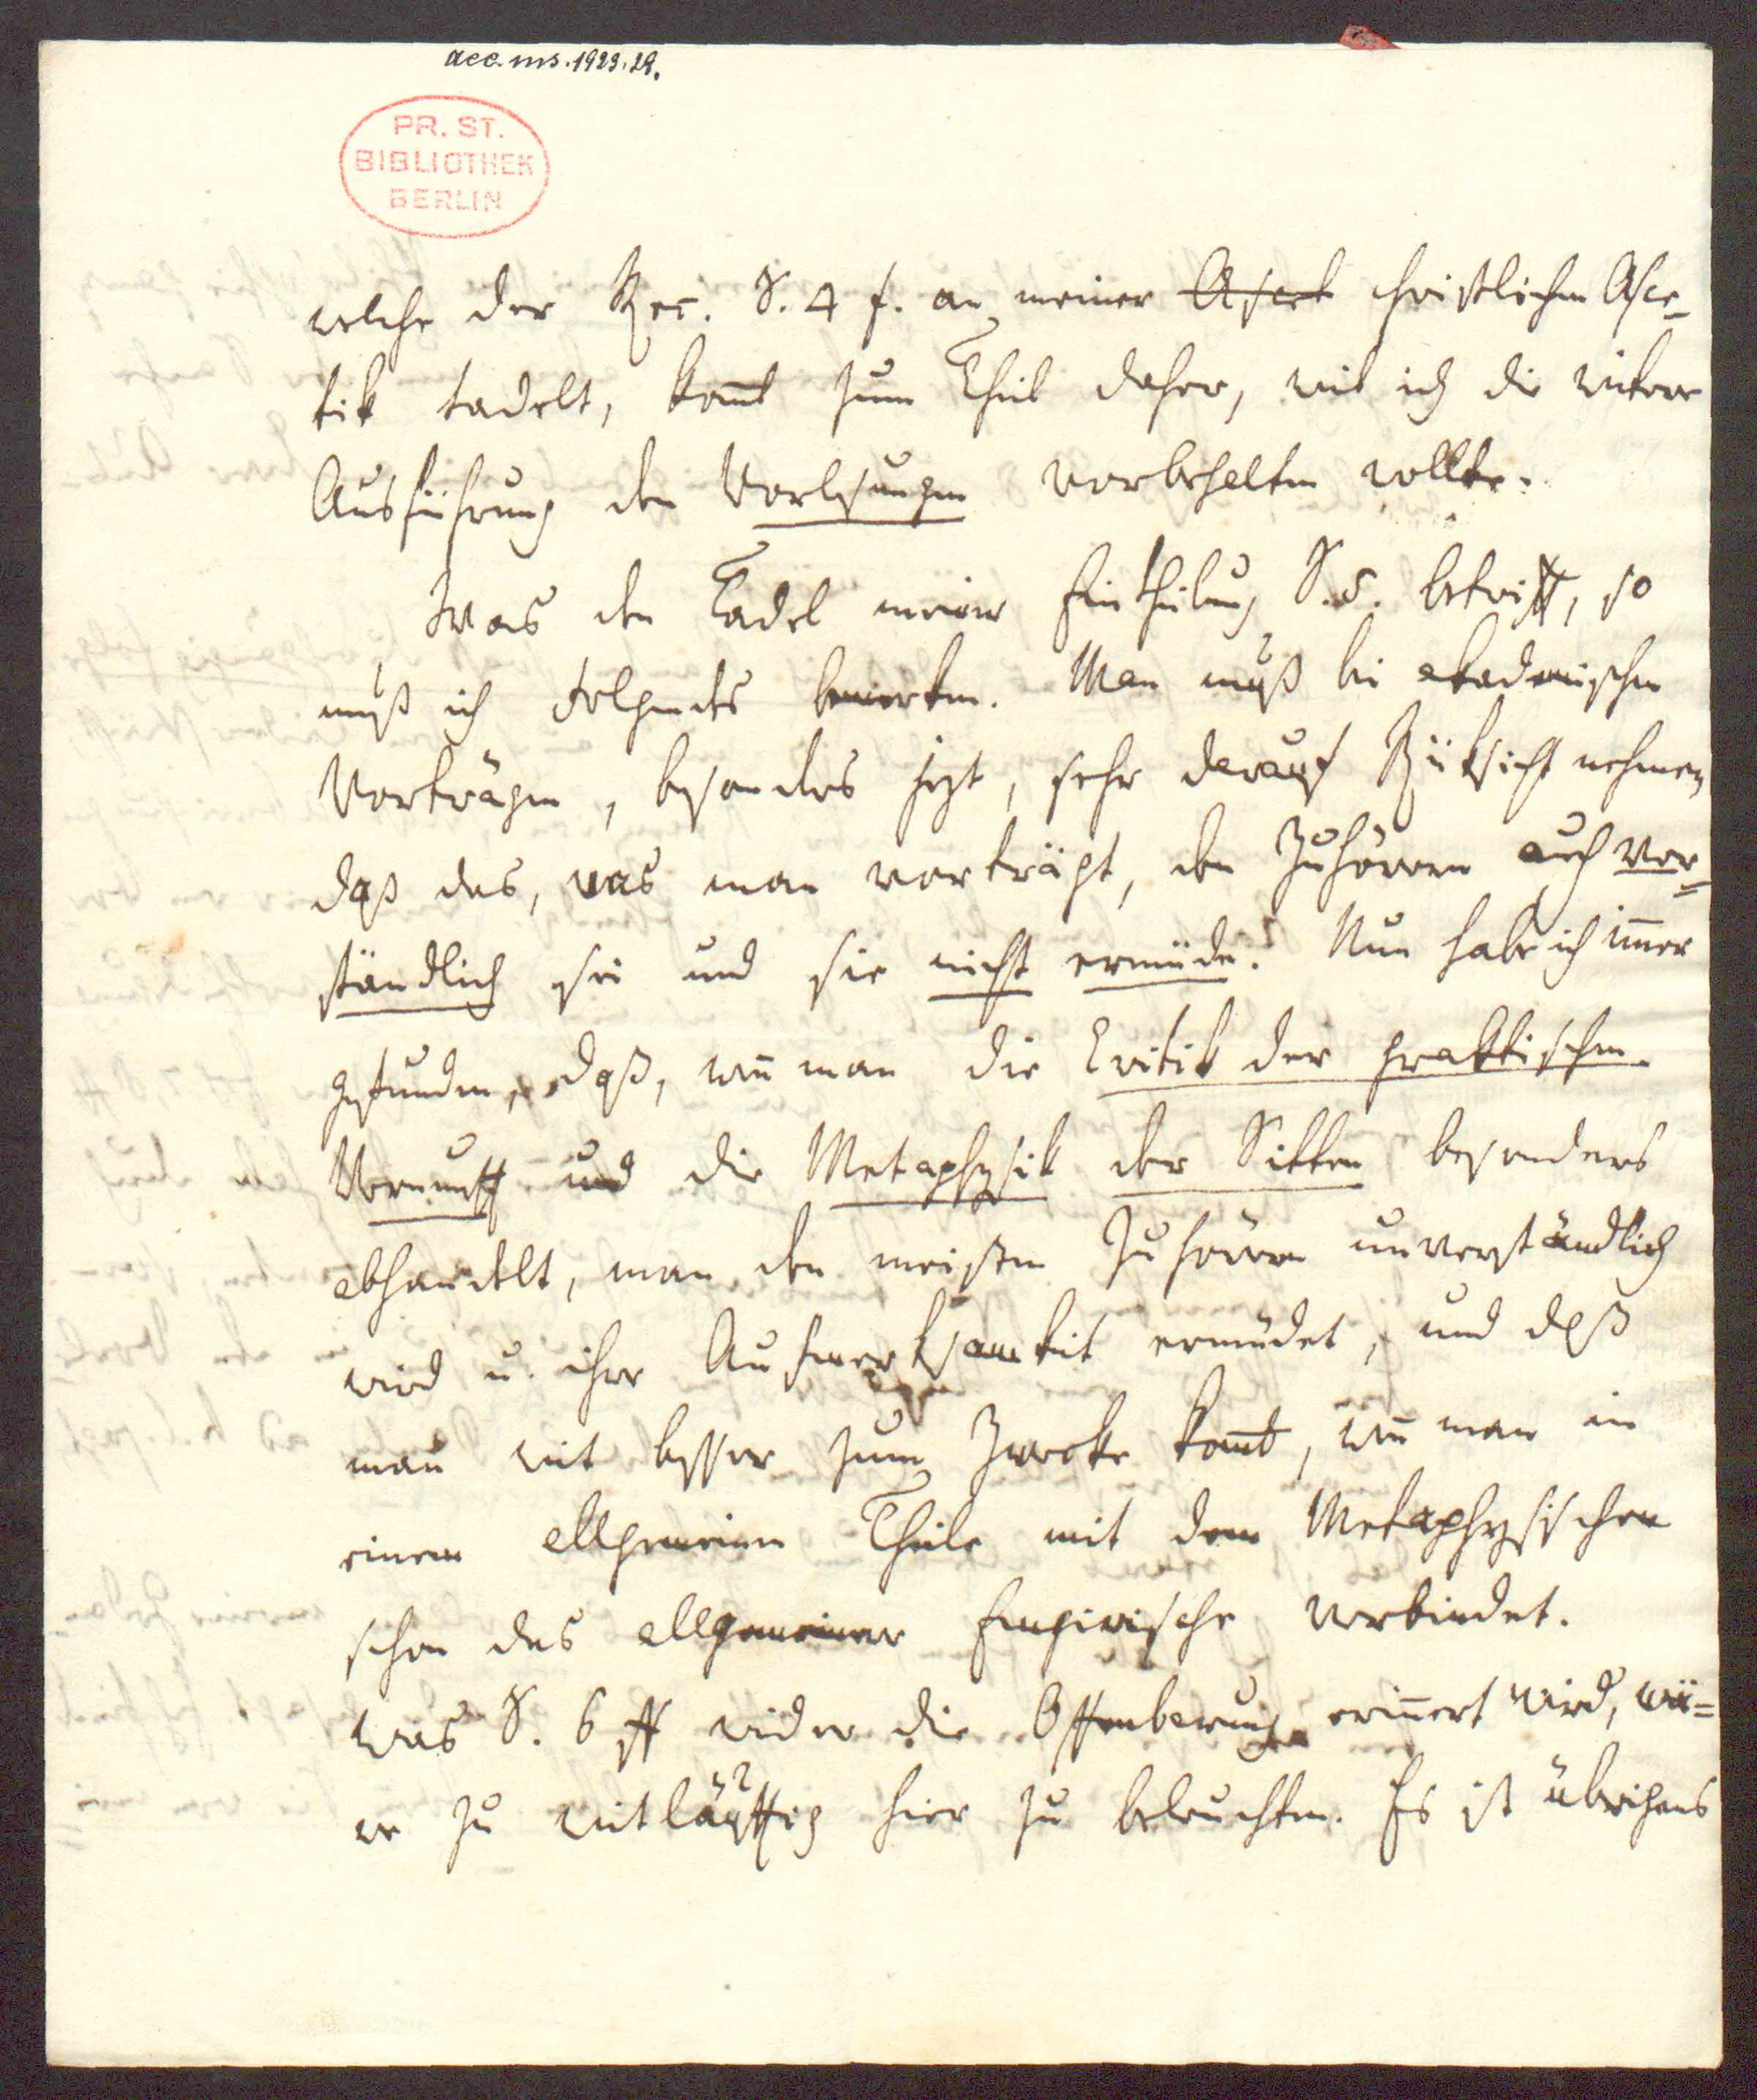 acc. ms. 1923. 29.
PR. ST.
BIBLIOTHEK
BERLIN
welche der Rec. S. 4 f. an meiner Ascet christlichen Asce-
tik tadelt, kom̄t zum Theil daher, weil ich die weitere
Ausführung den Vorlesungen vorbehalten wollte.
Was den Tadel meiner Eintheilung S. 5. betrifft, so
muß ich Folgendes bemerken. Man muß bei akademischen
Vorträgen, besonders jezt, sehr darauf Rüksicht nehmen,
daß das, was man vorträgt, den Zuhörern auch ver-
ständlich sei und sie nicht ermüde. Nun habe ich im̄er
gefunden, daß, wen̄ man die Critik der praktischen
Vernunft und die Metaphysik der Sitten besonders
abhandelt, man den meisten Zuhörern unverständlich
wird u. ihre Aufmerksamkeit ermüdet, und daß
man weit besser zum Zwecke kom̄t, wen̄ man in
einem allgemeinen Theile mit dem Metaphysischen
schon das allgemeinere Empirische verbindet.
Was S. 6 ff wider die Offenbarung erin̄ert wird, wä=
re zu weitläuftig hier zu beleuchten. Es ist übrigens